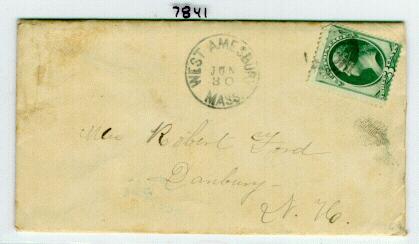 7841
WEST AMESBURY
JUN
30
MASS.
Mrs Robert Ford
Danbury
N. H.